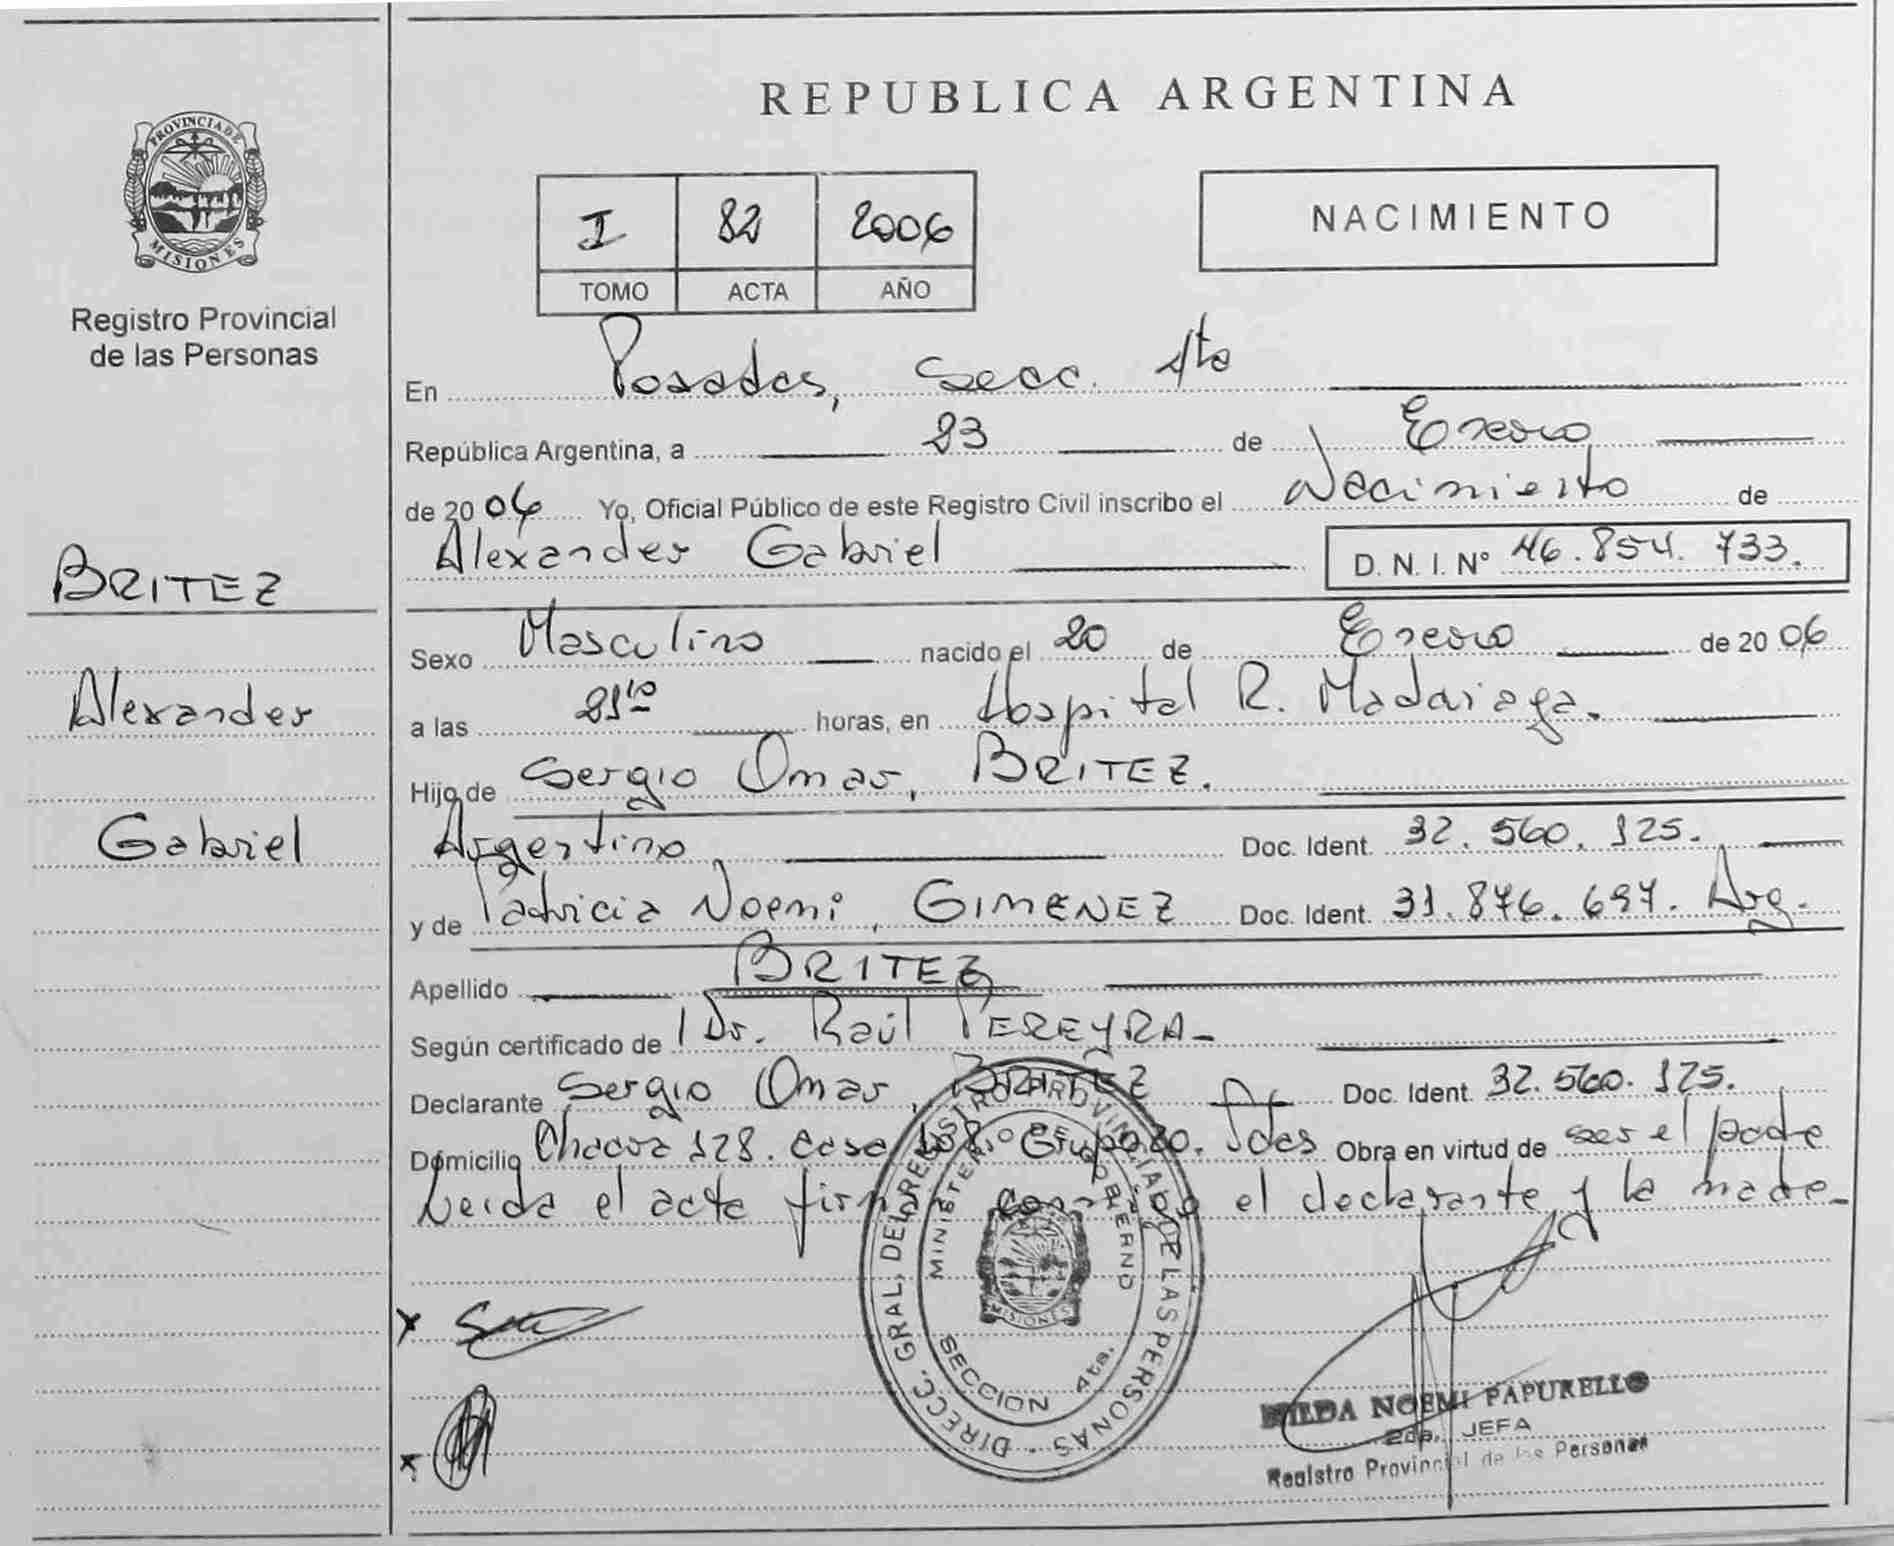 PROVINCIA DE
MISIONES
Registro Provincial
de las Personas
BRITEZ
Alexander
Gabriel
REPUBLICA ARGENTINA
I 82 2006
TOMO ACTA AÑO
NACIMIENTO
En Posadas, Secc. 4ta
República Argentina, a 23 de Enero
de 2006 Yo, Oficial Público de este Registro Civil inscribo el Nacimiento de
Alexander Gabriel D. N. I. Nº 46.854.733.
Sexo Masculino nacido el 20 de Enero de 2006
a las 21 10 horas, en Hospital R. Madariaga.
Hijo de Sergio Omar, BRITEZ.
Argentino Doc. Ident. 32.560.125.
y de Patricia Noemi, GIMENEZ Doc. Ident. 31.876.697. Arg.
Apellido BRITEZ
Según certificado de Dr. Raúl PEREYRA-
Declarante Sergio Omar, BRITEZ Doc. Ident. 32.560.125.
Domicilio Chacra 128. casa 108. Grupo 20. Pdas Obra en virtud de ser el padre
Leida el acta firman conmigo el declarante y la madre-
DIRECC. GRAL. DEL REGISTRO PROVINCIAL DE LAS PERSONAS
MINISTERIO DE GOBIERNO
MISIONES
SECCION 4ta.
x
x
NOEMI PAPURELLO
2da. JEFA
Registro Provincial de las Personas